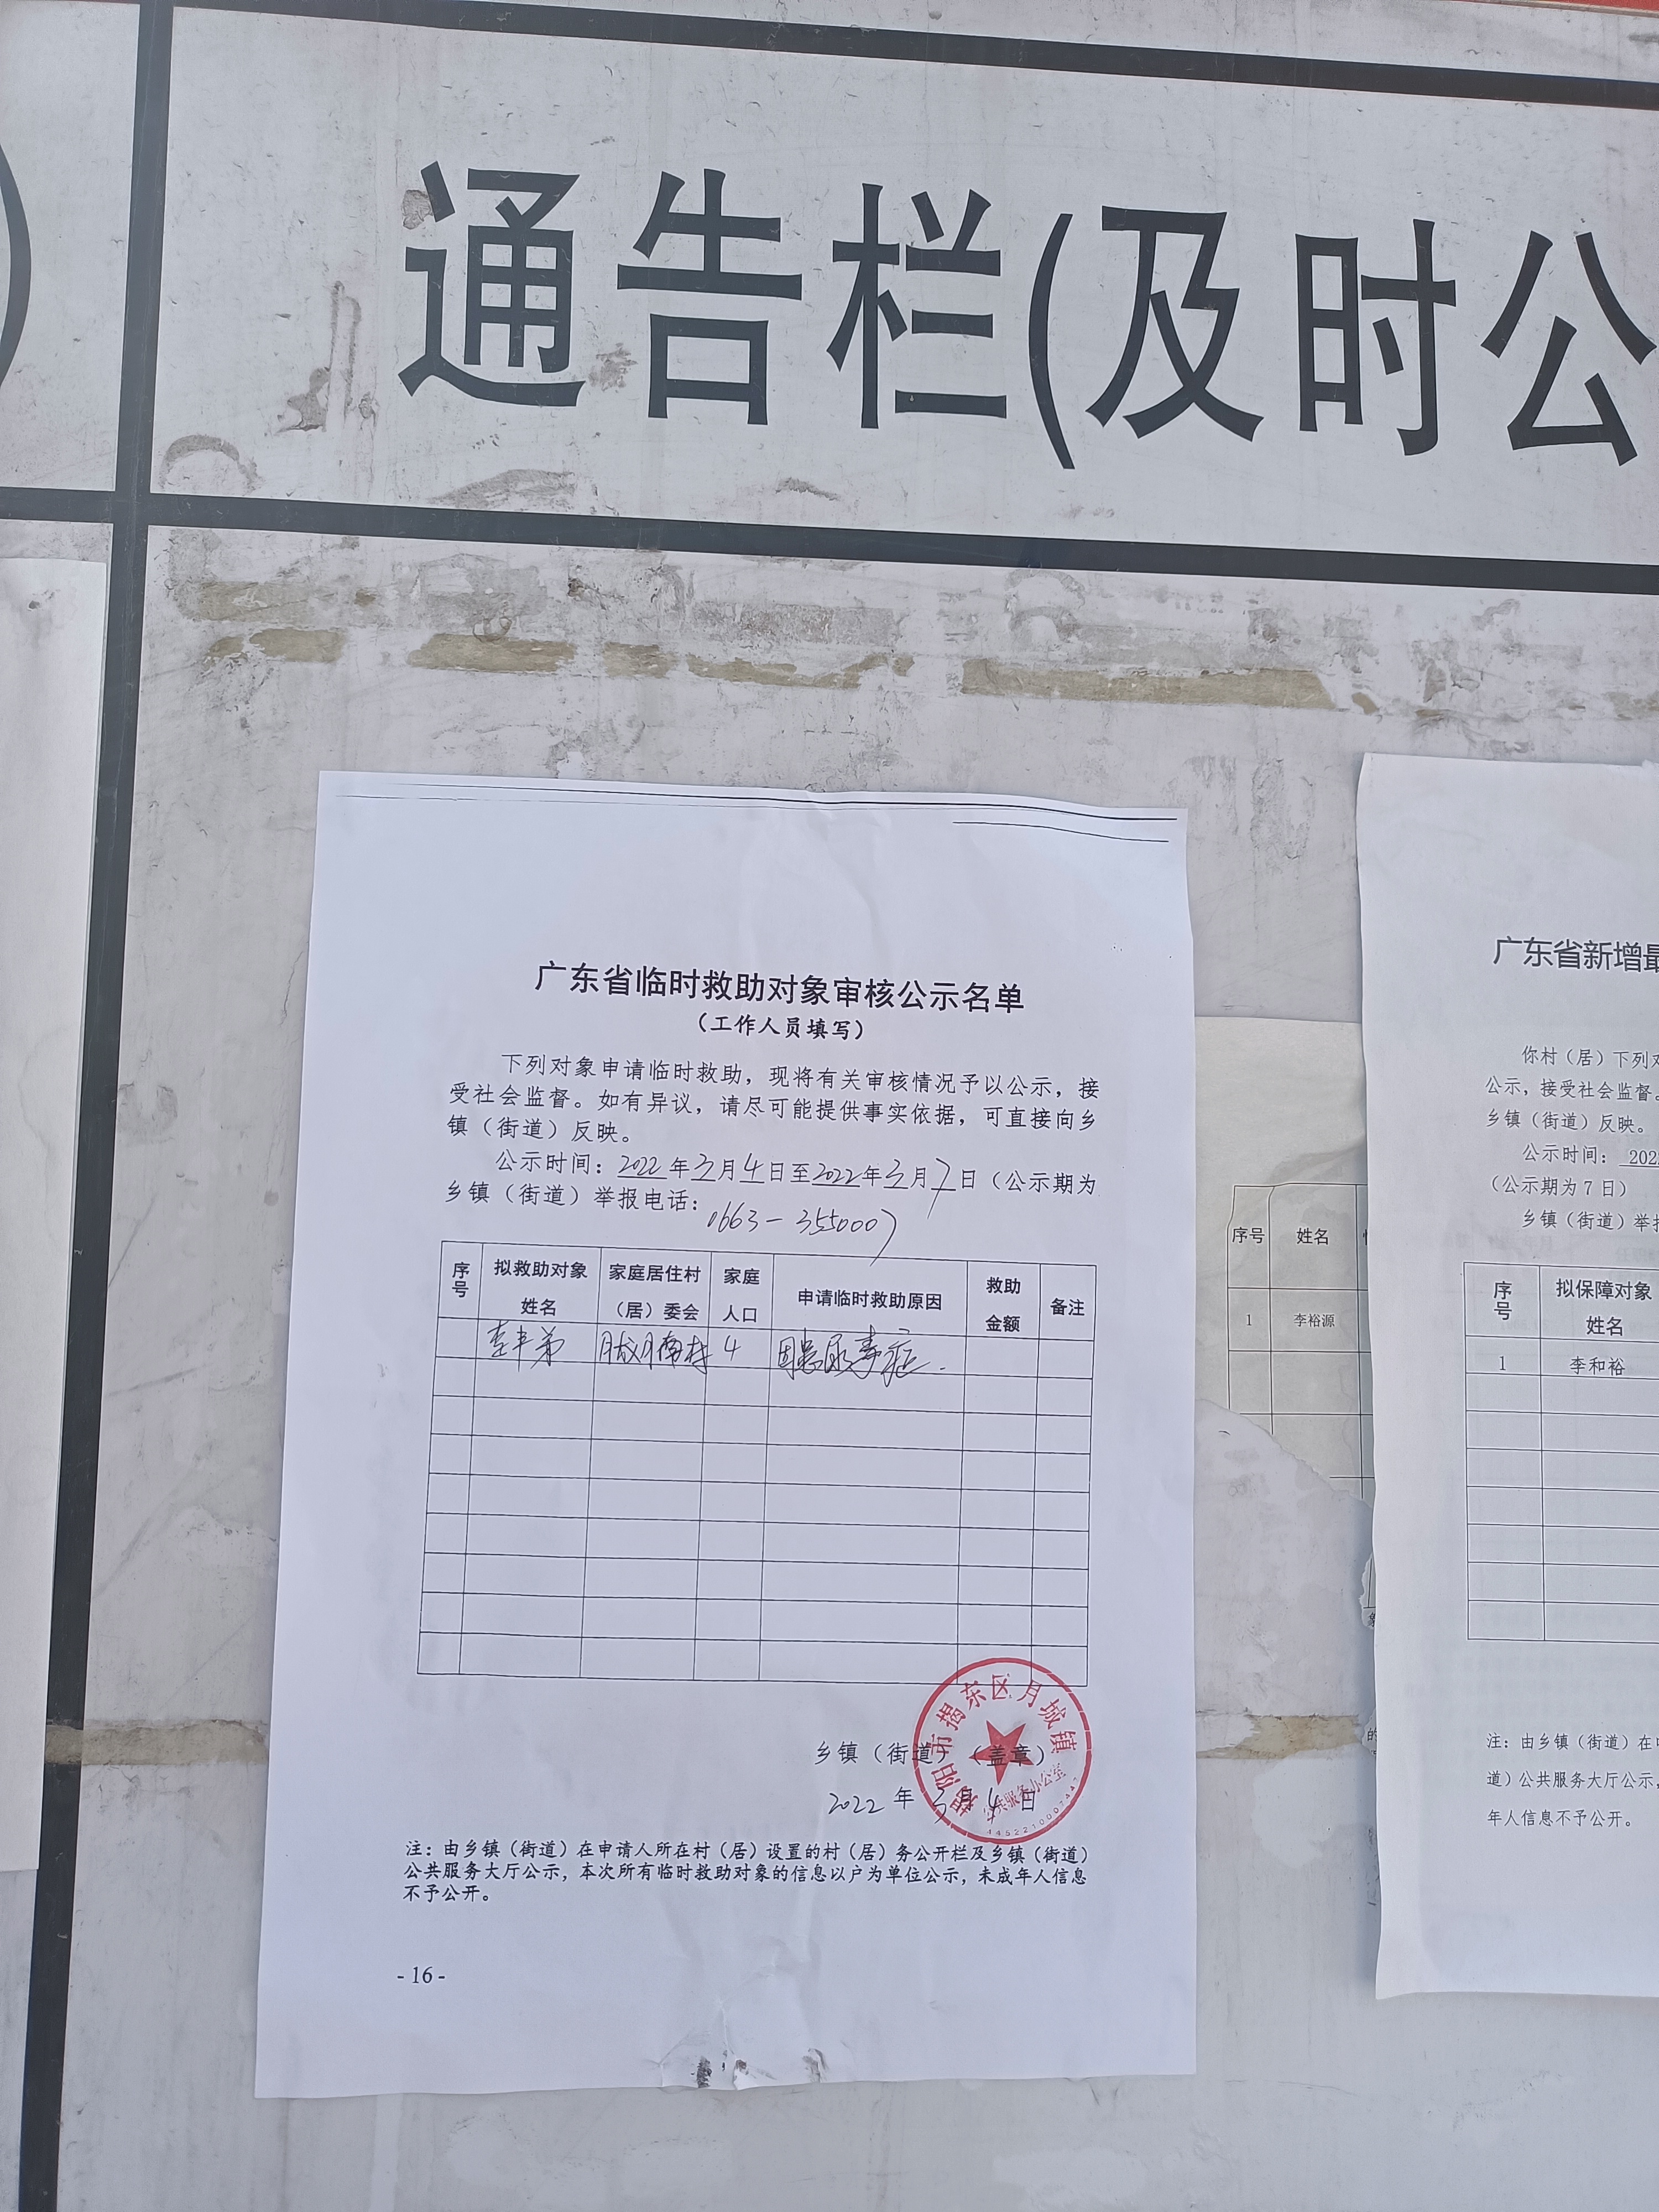 通告栏(及时公
广东省临时救助对象审核公示名单
（工作人员填写）
下列对象申请临时救助，现将有关审核情况予以公示，接
受社会监督。如有异议，请尽可能提供事实依据，可直接向乡
镇（街道）反映。
公示时间：2022年3月4日至2022年3月7日（公示期为
乡镇（街道）举报电话：0663-3550007
序号 拟救助对象姓名 家庭居住村（居）委会 家庭人口 申请临时救助原因 救助金额 备注
4 因患尿毒症.
揭阳市揭东区月城镇
公共服务办公室
4452210007447
乡镇（街道）（盖章）
2022年3月4日
注：由乡镇（街道）在申请人所在村（居）设置的村（居）务公开栏及乡镇（街道）
公共服务大厅公示，本次所有临时救助对象的信息以户为单位公示，未成年人信息
不予公开。
- 16 -
序号 姓名
1 李裕源
广东省新增最
你村（居）下列对
公示，接受社会监督。
乡镇（街道）反映。
公示时间：202
（公示期为7日）
乡镇（街道）举
序号 拟保障对象姓名
1 李和裕
注：由乡镇（街道）在
道）公共服务大厅公示，
年人信息不予公开。